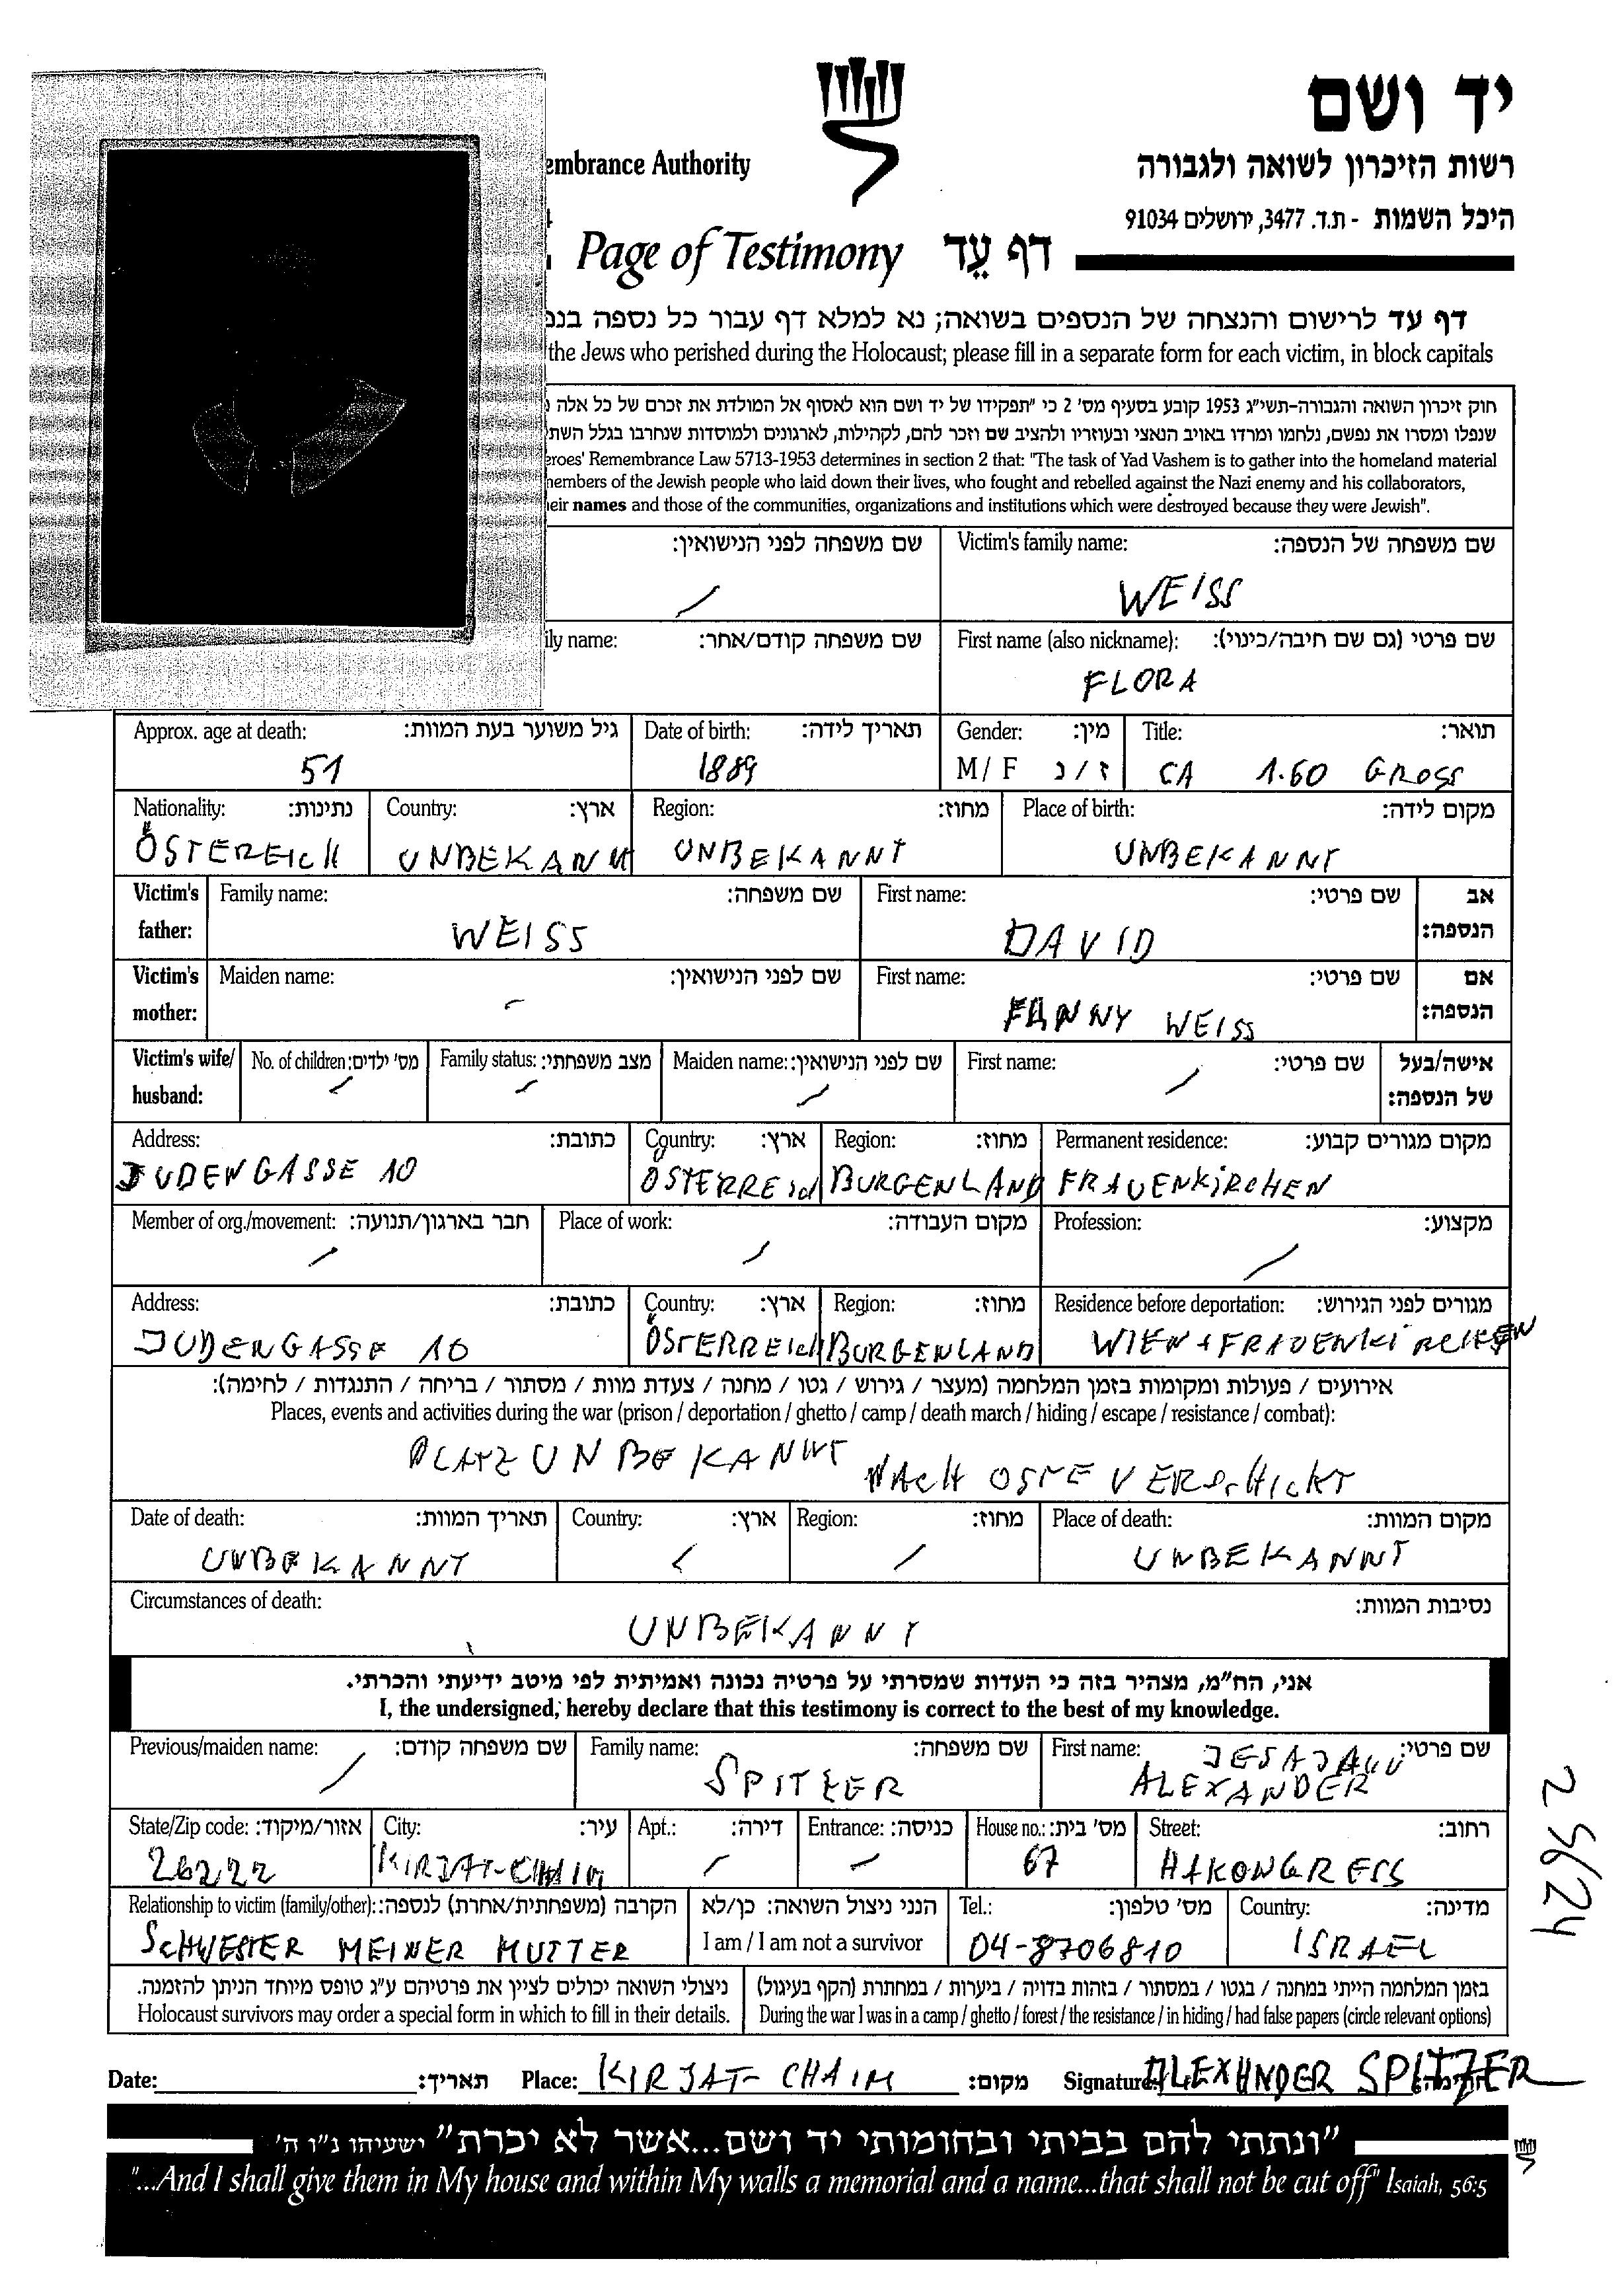 יד ושם
רשות הזיכרון לשואה ולגבורה
embrance Authority
היכל השמות - ת.ד. 3477, ירושלים 91034
Page of Testimony דף עֵד
דף עד לרישום והנצחה של הנספים בשואה; נא למלא דף עבור כל נספה בנפ
the Jews who perished during the Holocaust; please fill in a separate form for each victim, in block capitals
חוק זיכרון השואה והגבורה-תשי״ג 1953 קובע בסעיף מס' 2 כי "תפקידו של יד ושם הוא לאסוף אל המולדת את זכרם של כל אלה
שנפלו ומסרו את נפשם, נלחמו ומרדו באויב הנאצי ובעוזריו ולהציב שם וזכר להם, לקהילות, לארגונים ולמוסדות שנחרבו בגלל השת
eroes' Remembrance Law 5713-1953 determines in section 2 that: "The task of Yad Vashem is to gather into the homeland material
members of the Jewish people who laid down their lives, who fought and rebelled against the Nazi enemy and his collaborators,
eir names and those of the communities, organizations and institutions which were destroyed because they were Jewish".
שם משפחה לפני הנישואין: Victim's family name: שם משפחה של הנספה:
WEISS
ily name: שם משפחה קודם/אחר: First name (also nickname): שם פרטי (גם שם חיבה/כינוי):
FLORA
Approx. age at death: גיל משוער בעת המוות: Date of birth: תאריך לידה: Gender: מין: Title: תואר:
51 1889 M / F ז / נ CA 1.60 GROSS
Nationality: נתינות: Country: ארץ: Region: מחוז: Place of birth: מקום לידה:
ÖSTEREICH UNBEKANNT UNBEKANNT UNBEKANNT
Victim's father: Family name: שם משפחה: First name: שם פרטי: אב הנספה:
WEISS DAVID
Victim's mother: Maiden name: שם לפני הנישואין: First name: שם פרטי: אם הנספה:
- FANNY WEISS
Victim's wife/ husband: No. of children: מס' ילדים: Family status: מצב משפחתי: Maiden name: שם לפני הנישואין: First name: שם פרטי: אישה/בעל של הנספה:
Address: כתובת: Country: ארץ: Region: מחוז: Permanent residence: מקום מגורים קבוע:
JUDENGASSE 10 ÖSTERREICH BURGENLAND FRAUENKIRCHEN
Member of org./movement: חבר בארגון/תנועה: Place of work: מקום העבודה: Profession: מקצוע:
Address: כתובת: Country: ארץ: Region: מחוז: Residence before deportation: מגורים לפני הגירוש:
JUDENGASSE 10 ÖSTERREICH BURGENLAND WIEN + FRAUENKIRCHEN
אירועים / פעולות ומקומות בזמן המלחמה (מעצר / גירוש / גטו / מחנה / צעדת מוות / מסתור / בריחה / התנגדות / לחימה):
Places, events and activities during the war (prison / deportation / ghetto / camp / death march / hiding / escape / resistance / combat):
PLATZ UNBEKANNT NACH OSTE VERSCHICKT
Date of death: תאריך המוות: Country: ארץ: Region: מחוז: Place of death: מקום המוות:
UNBEKANNT UNBEKANNT
Circumstances of death: נסיבות המוות:
UNBEKANNT
אני, הח״מ, מצהיר בזה כי העדות שמסרתי על פרטיה נכונה ואמיתית לפי מיטב ידיעתי והכרתי.
I, the undersigned, hereby declare that this testimony is correct to the best of my knowledge.
Previous/maiden name: שם משפחה קודם: Family name: שם משפחה: First name: שם פרטי:
SPITZER ALEXANDER
State/Zip code: אזור/מיקוד: City: עיר: Apt.: דירה: Entrance: כניסה: House no.: מס' בית: Street: רחוב:
26222 KIRJAT-CHAIM 67 HAKONGRESS
Relationship to victim (family/other): הקרבה (משפחתית/אחרת) לנספה: הנני ניצול השואה: כן/לא Tel.: מס' טלפון: Country: מדינה:
SCHWESTER MEINER MUTTER I am / I am not a survivor 04-8706810 ISRAEL
ניצולי השואה יכולים לציין את פרטיהם ע״ג טופס מיוחד הניתן להזמנה. בזמן המלחמה הייתי במחנה / בגטו / במסתור / בזהות בדויה / ביערות / במחתרת (הקף בעיגול)
Holocaust survivors may order a special form in which to fill in their details. During the war I was in a camp / ghetto / forest / the resistance / in hiding / had false papers (circle relevant options)
Date: תאריך: Place: KIRJAT-CHAIM מקום: Signature: ALEXANDER SPITZER
"ונתתי להם בביתי ובחומותי יד ושם...אשר לא יכרת" ישעיהו נ״ו ה'
"...And I shall give them in My house and within My walls a memorial and a name...that shall not be cut off" Isaiah, 56:5
25624